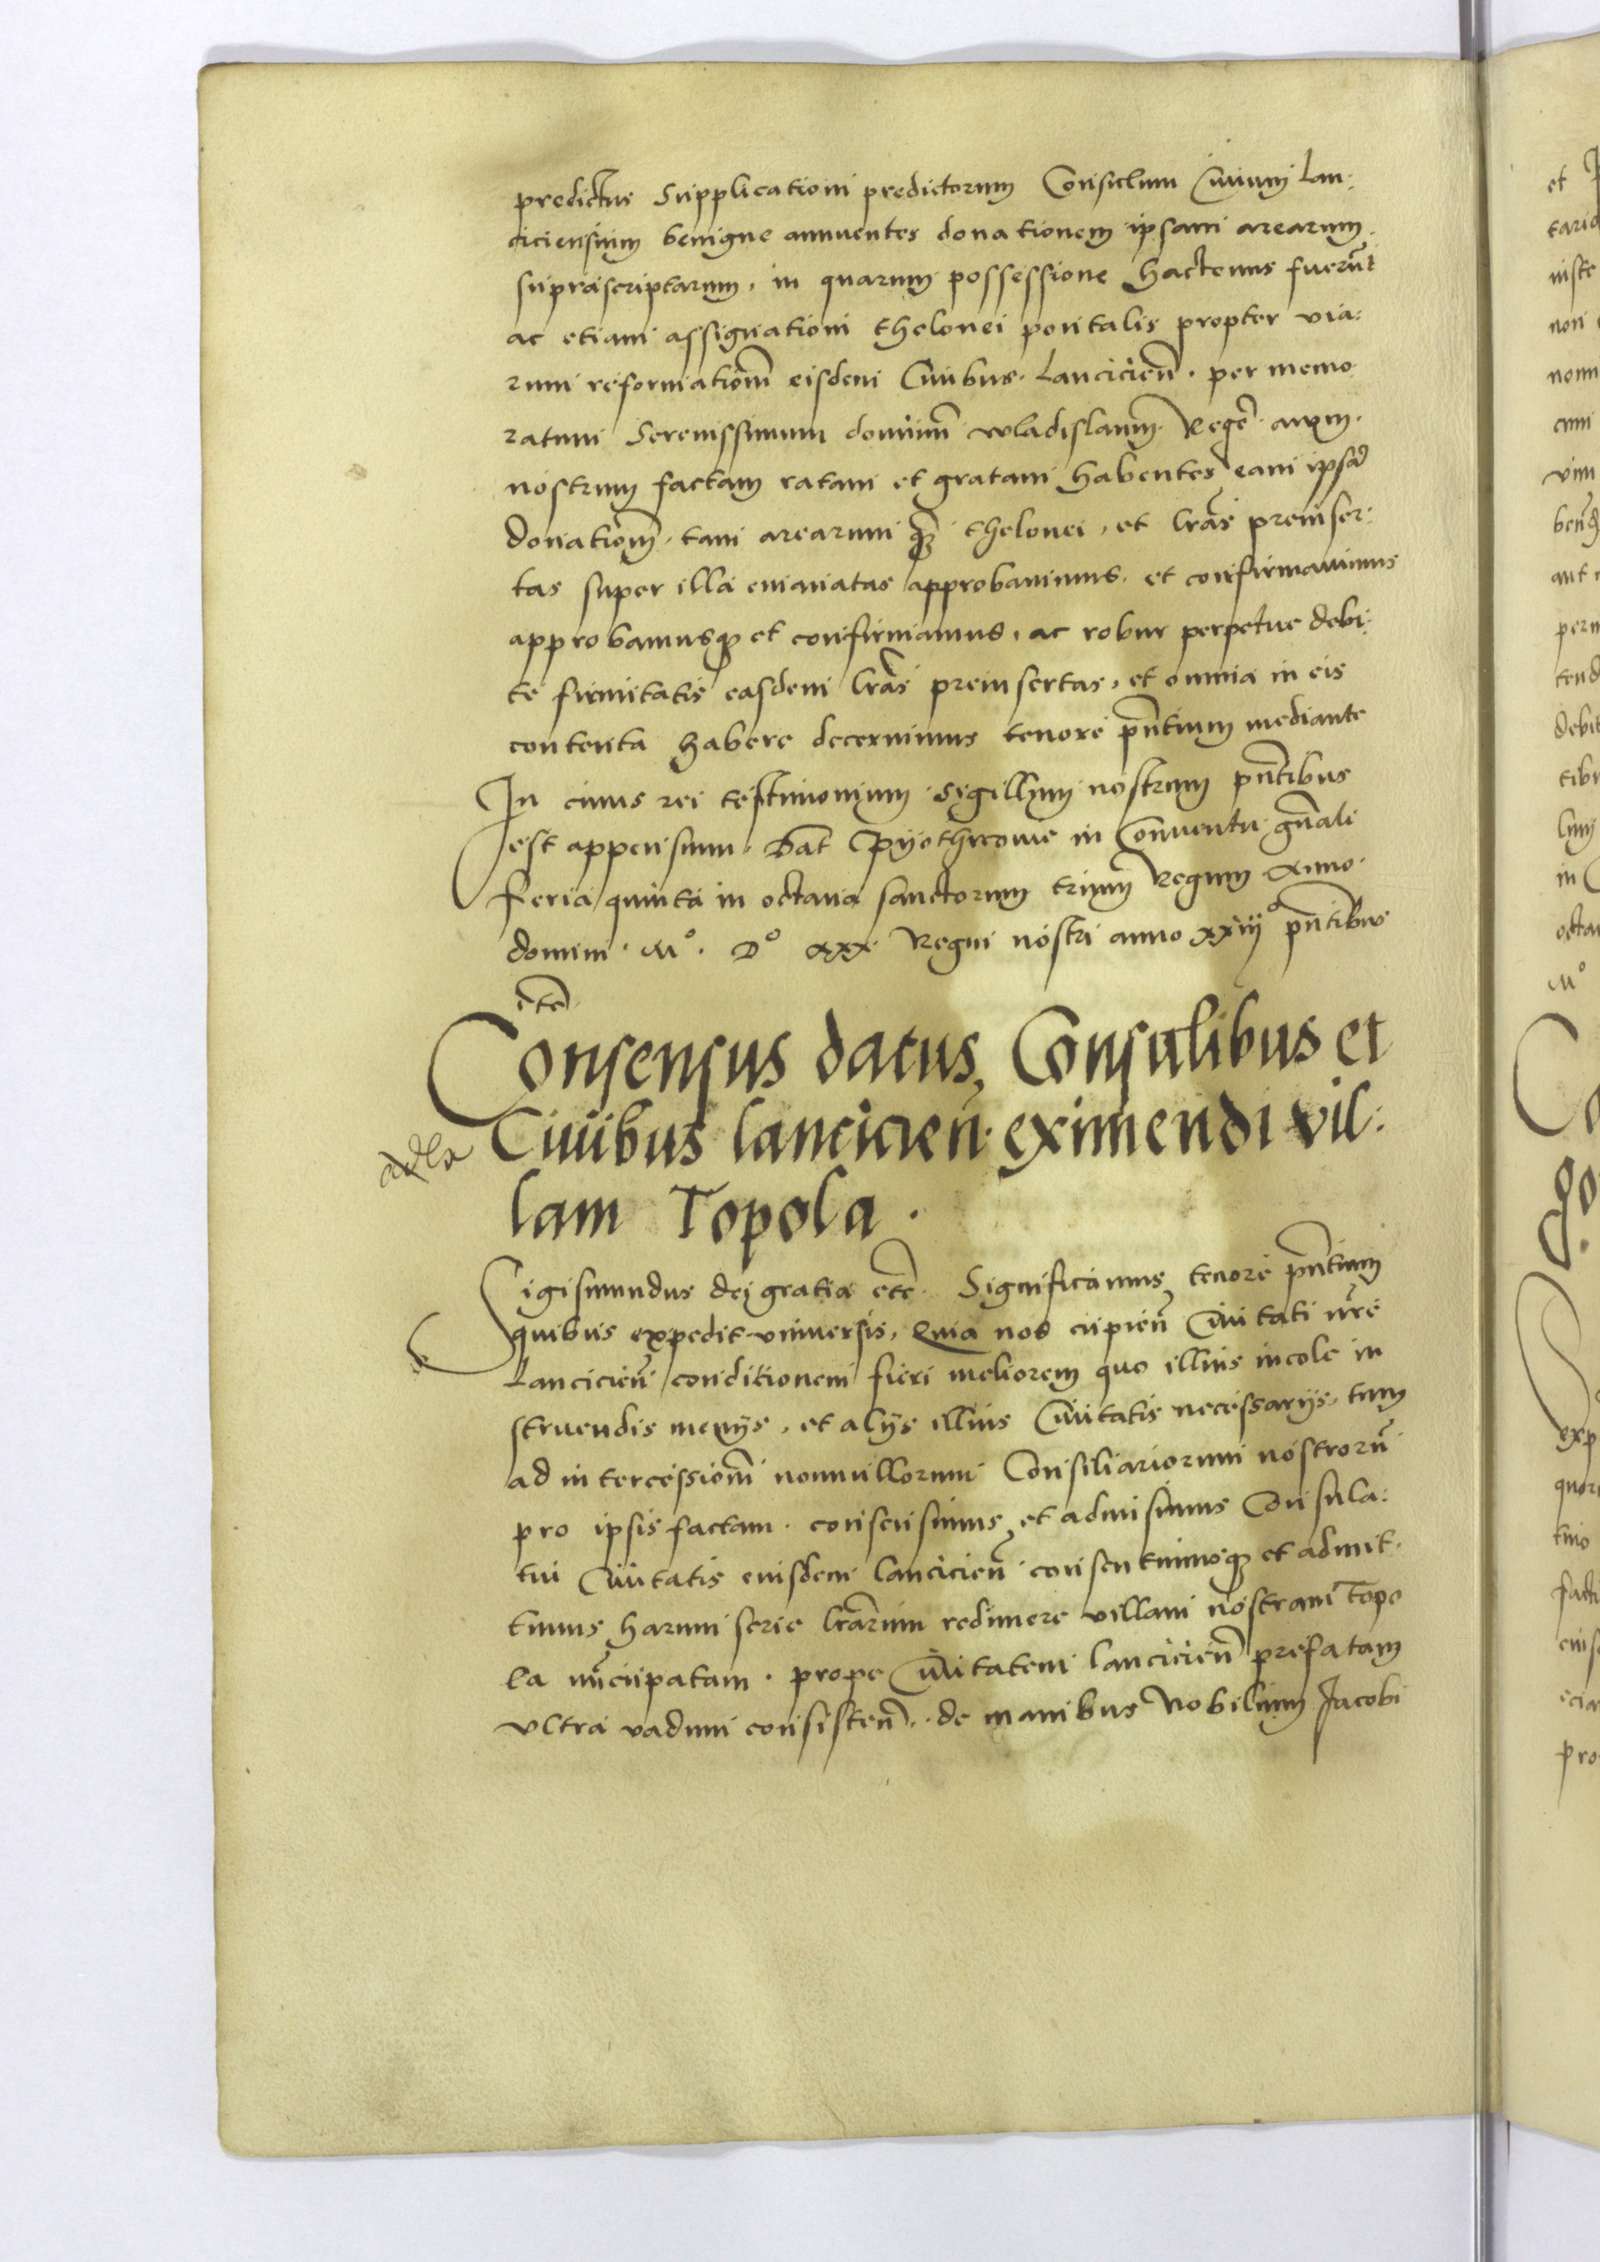 predictus Supplicationi predictorum Consulum Ciuium Lan:
ciciensium benigne annuentes donationem ipsam arearum
suprascriptarum, in quarum possessione hactenus fuerūt
ac etiam assignationi thelonei pontalis propter via:
rum reformationē eisdem Ciuibus Lanciciēn. per memo
ratum Serenissimum dominū wladislaum Regē auum
nostrum factam ratam et gratam habentes eam ipsā
donationē tam arearum q̃ȝ thelonei, et l̃ras preinser:
tas super illa emanatas approbauimus, et confirmauimus
approbamusqȝ et confirmamus, ac robur perpetue debi:
te firmitatis easdem l̃ras preinsertas, et omnia in eis
contenta habere decernimus tenore pñtium mediante
In cuius rei testimonium Sigillum nostrum pñtibus
est appensum. Dat̃ Pyothrcouie in Conuentu gñali
feria quinta in octaua sanctorum trium Regum Anno
domini Mº. Dº xxx Regni nostri anno xxiijº pñtibus
etc̃
Consensus datus, Consulibus et
Ciuibus lanciciēn. eximendi vil:
lam Topola.
Sigismundus dei gratia etc̃. Significamus tenore pñtium
quibus expedit vniuersis, Quia nos cupiēn Ciuitati nr̃e
Lanciciēn conditionem fieri meliorem quo illius incole in
struendis menijs, et alijs illius Ciuitatis necessarijs, tum
ad intercessionē nonnullorum Consiliariorum nostrorū
pro ipsis factam. consensimus et admisimus Consula:
tui Ciuitatis eiusdem lanciciēn consentimusqȝ et admit
timus harum serie l̃rarum redimere villam nostram Topo
la nūcupatam. prope Ciuitatem lanciciēn prefatam
vltra vadum consistēn. de manibus Nobilium Jacobi